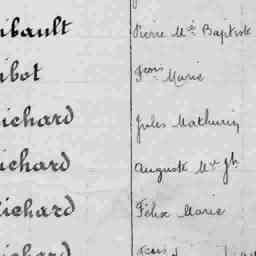 ibault Pierre Mie Baptiste
ibot Fcois Marie
ichard Jules Mathurin
ichard Auguste Mie Jh
ichard Félix Marie
ichard Fcois